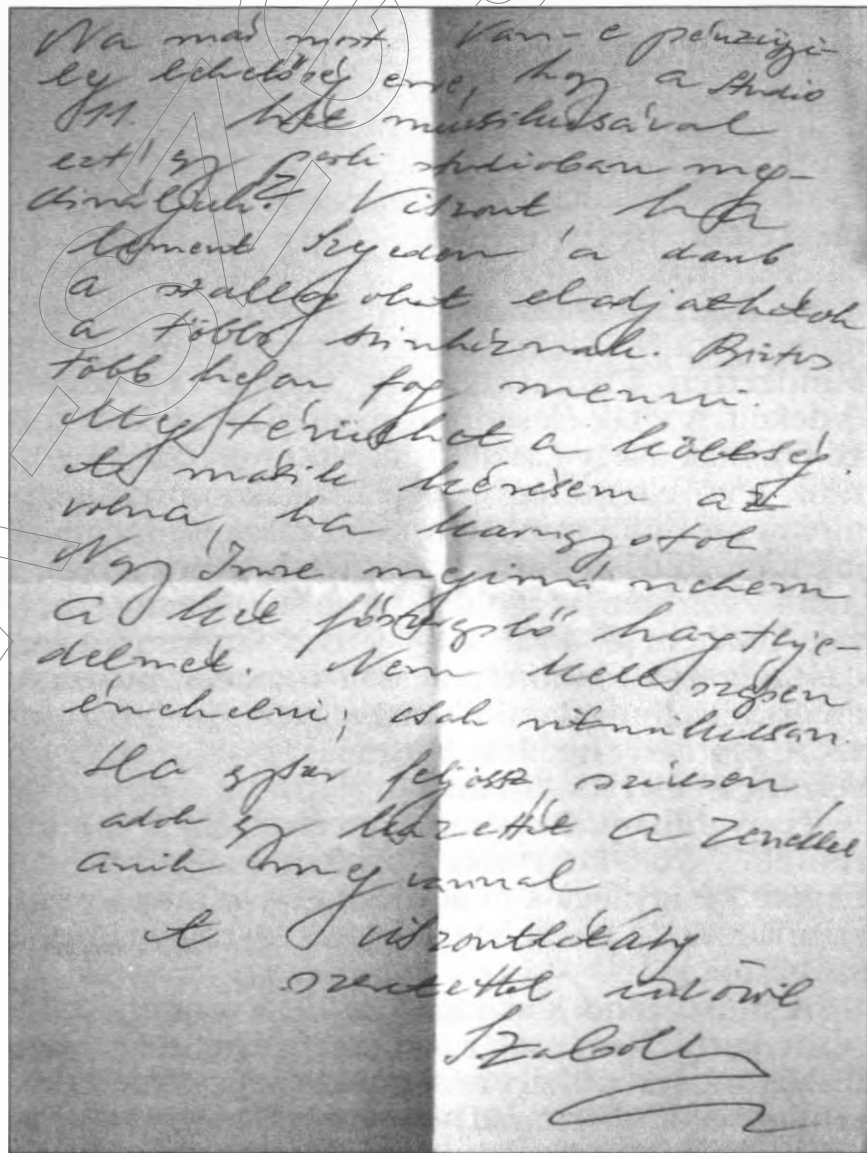 Na már most. Van-e pénzügyi-
leg lehetőség erre, hogy a Studio
11. két muzsikusával
ezt egy pesti studioban meg-
csináljuk? Viszont ha
lement Szegeden a darab
a szallagokat eladjathátok
a többi színháznak. Biztos
több helyen fog menni.
Meg térülhet a költség.
A másik kérésem az
volna, ha hangostol
Nagy Imre megírná nekem
a két főszereplő hangterje-
delmét. Nem kell szépen
énekelni, csak ritmikusan.
Ha egyszer feljössz szívesen
adok egy kazettát a zenékkel
amik meg vannak
A viszontlátásig
szeretettel üdvözöl
Szabolcs